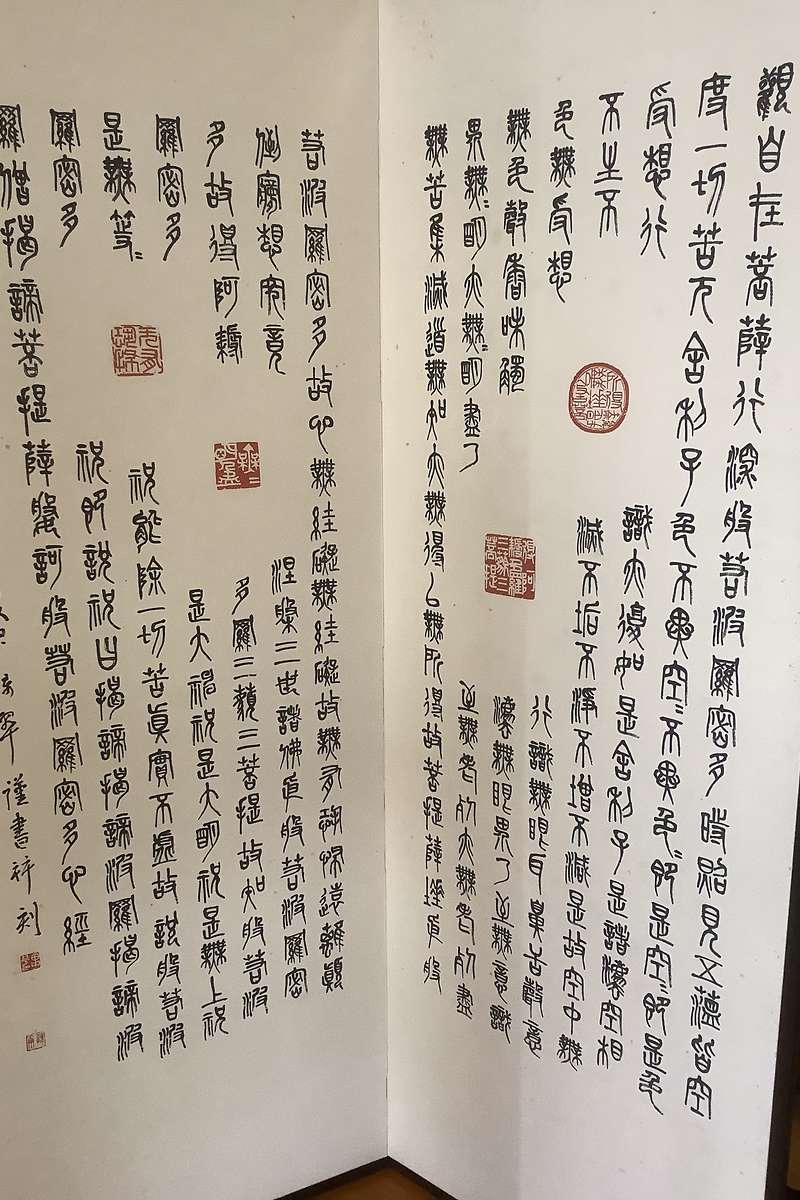 觀自在菩薩行深般若波羅密多時照見五蘊皆空
度一切苦厄舍利子色不異空〻不異色〻即是空〻即是色
受想行識亦復如是舍利子是諸灋空相
不生不滅不垢不淨不增不減是故空中無
色無受想行識無眼耳鼻舌身意
無色聲香味觸灋無眼界乃至無意識
界無〻明亦無〻明盡乃至無老死亦無老死盡
無苦集滅道無知亦無得以無所得故菩提薩埵依般
若波羅密多故心無絓礙無絓礙故無有恐怖遠離顛
倒夢想究竟涅槃三世諸佛依般若波羅密
多故得阿耨多羅三藐三菩提故知般若波
羅密多是大神祝是大明祝是無上祝
是無等〻祝能除一切苦真實不虛故說般若波
羅密多祝即說祝曰揭諦揭諦波羅揭諦波
羅僧揭諦菩提薩訶般若波羅密多心經
謹書并刻
得阿耨多羅三藐三菩提
無有恐怖
無〻明盡